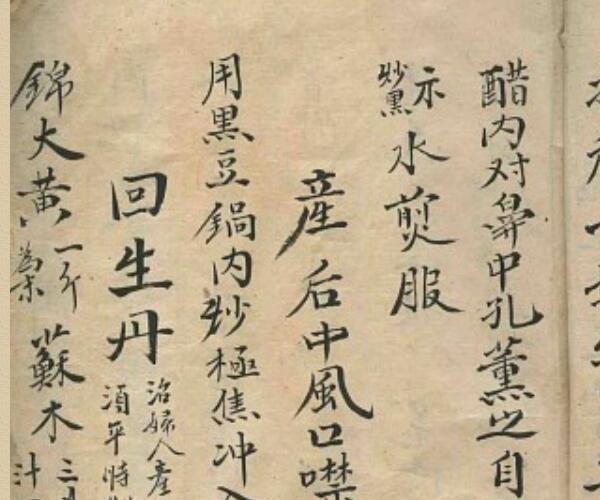 醋内对鼻中孔薰之自
示炒黑水煎服
産后中風口噤
用黒豆鍋内炒極焦冲
回生丹治婦人産
須平時
錦大黄一斤為末蘇木三
汁